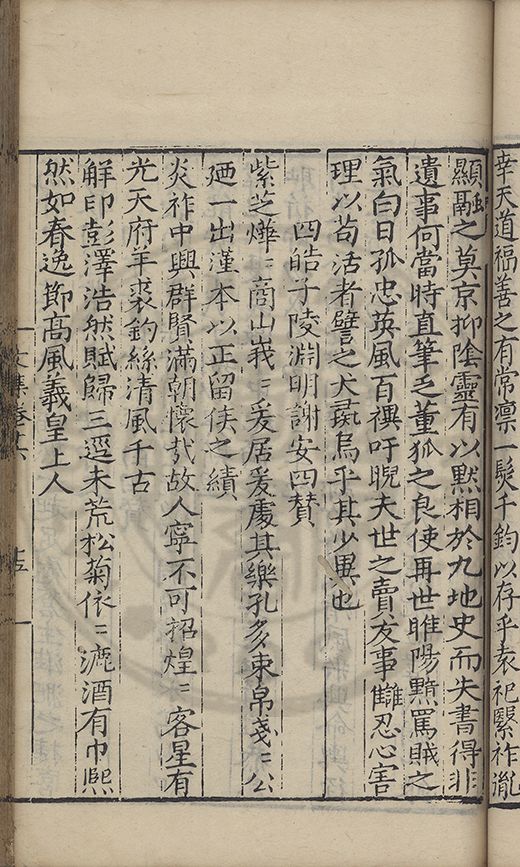 幸天道福善之有常凛一髮千鈞以存乎袁祀繄祚胤
顯融之莫京抑陰靈有以黙相於九地史而失書得非
遺事何當時直筆乏董狐之良使再世睢陽黙罵賊之
氣白日孤忠英風百禩吁睨夫世之賣友事讎忍心害
理以苟活者譬之犬彘烏乎其少異也
四皓子陵淵明謝安四賛
紫芝燁〻商山峩〻爰居爰處其樂孔多束帛戔〻公
廼一出漢本以正留侯之績
炎祚中興群賢滿朝懷㢤故人寧不可招煌〻客星有
光天府羊裘釣絲清風千古
解印彭澤浩然賦歸三逕未荒松菊依〻漉酒有巾熙
然如春逸節高風羲皇上人
文集卷六